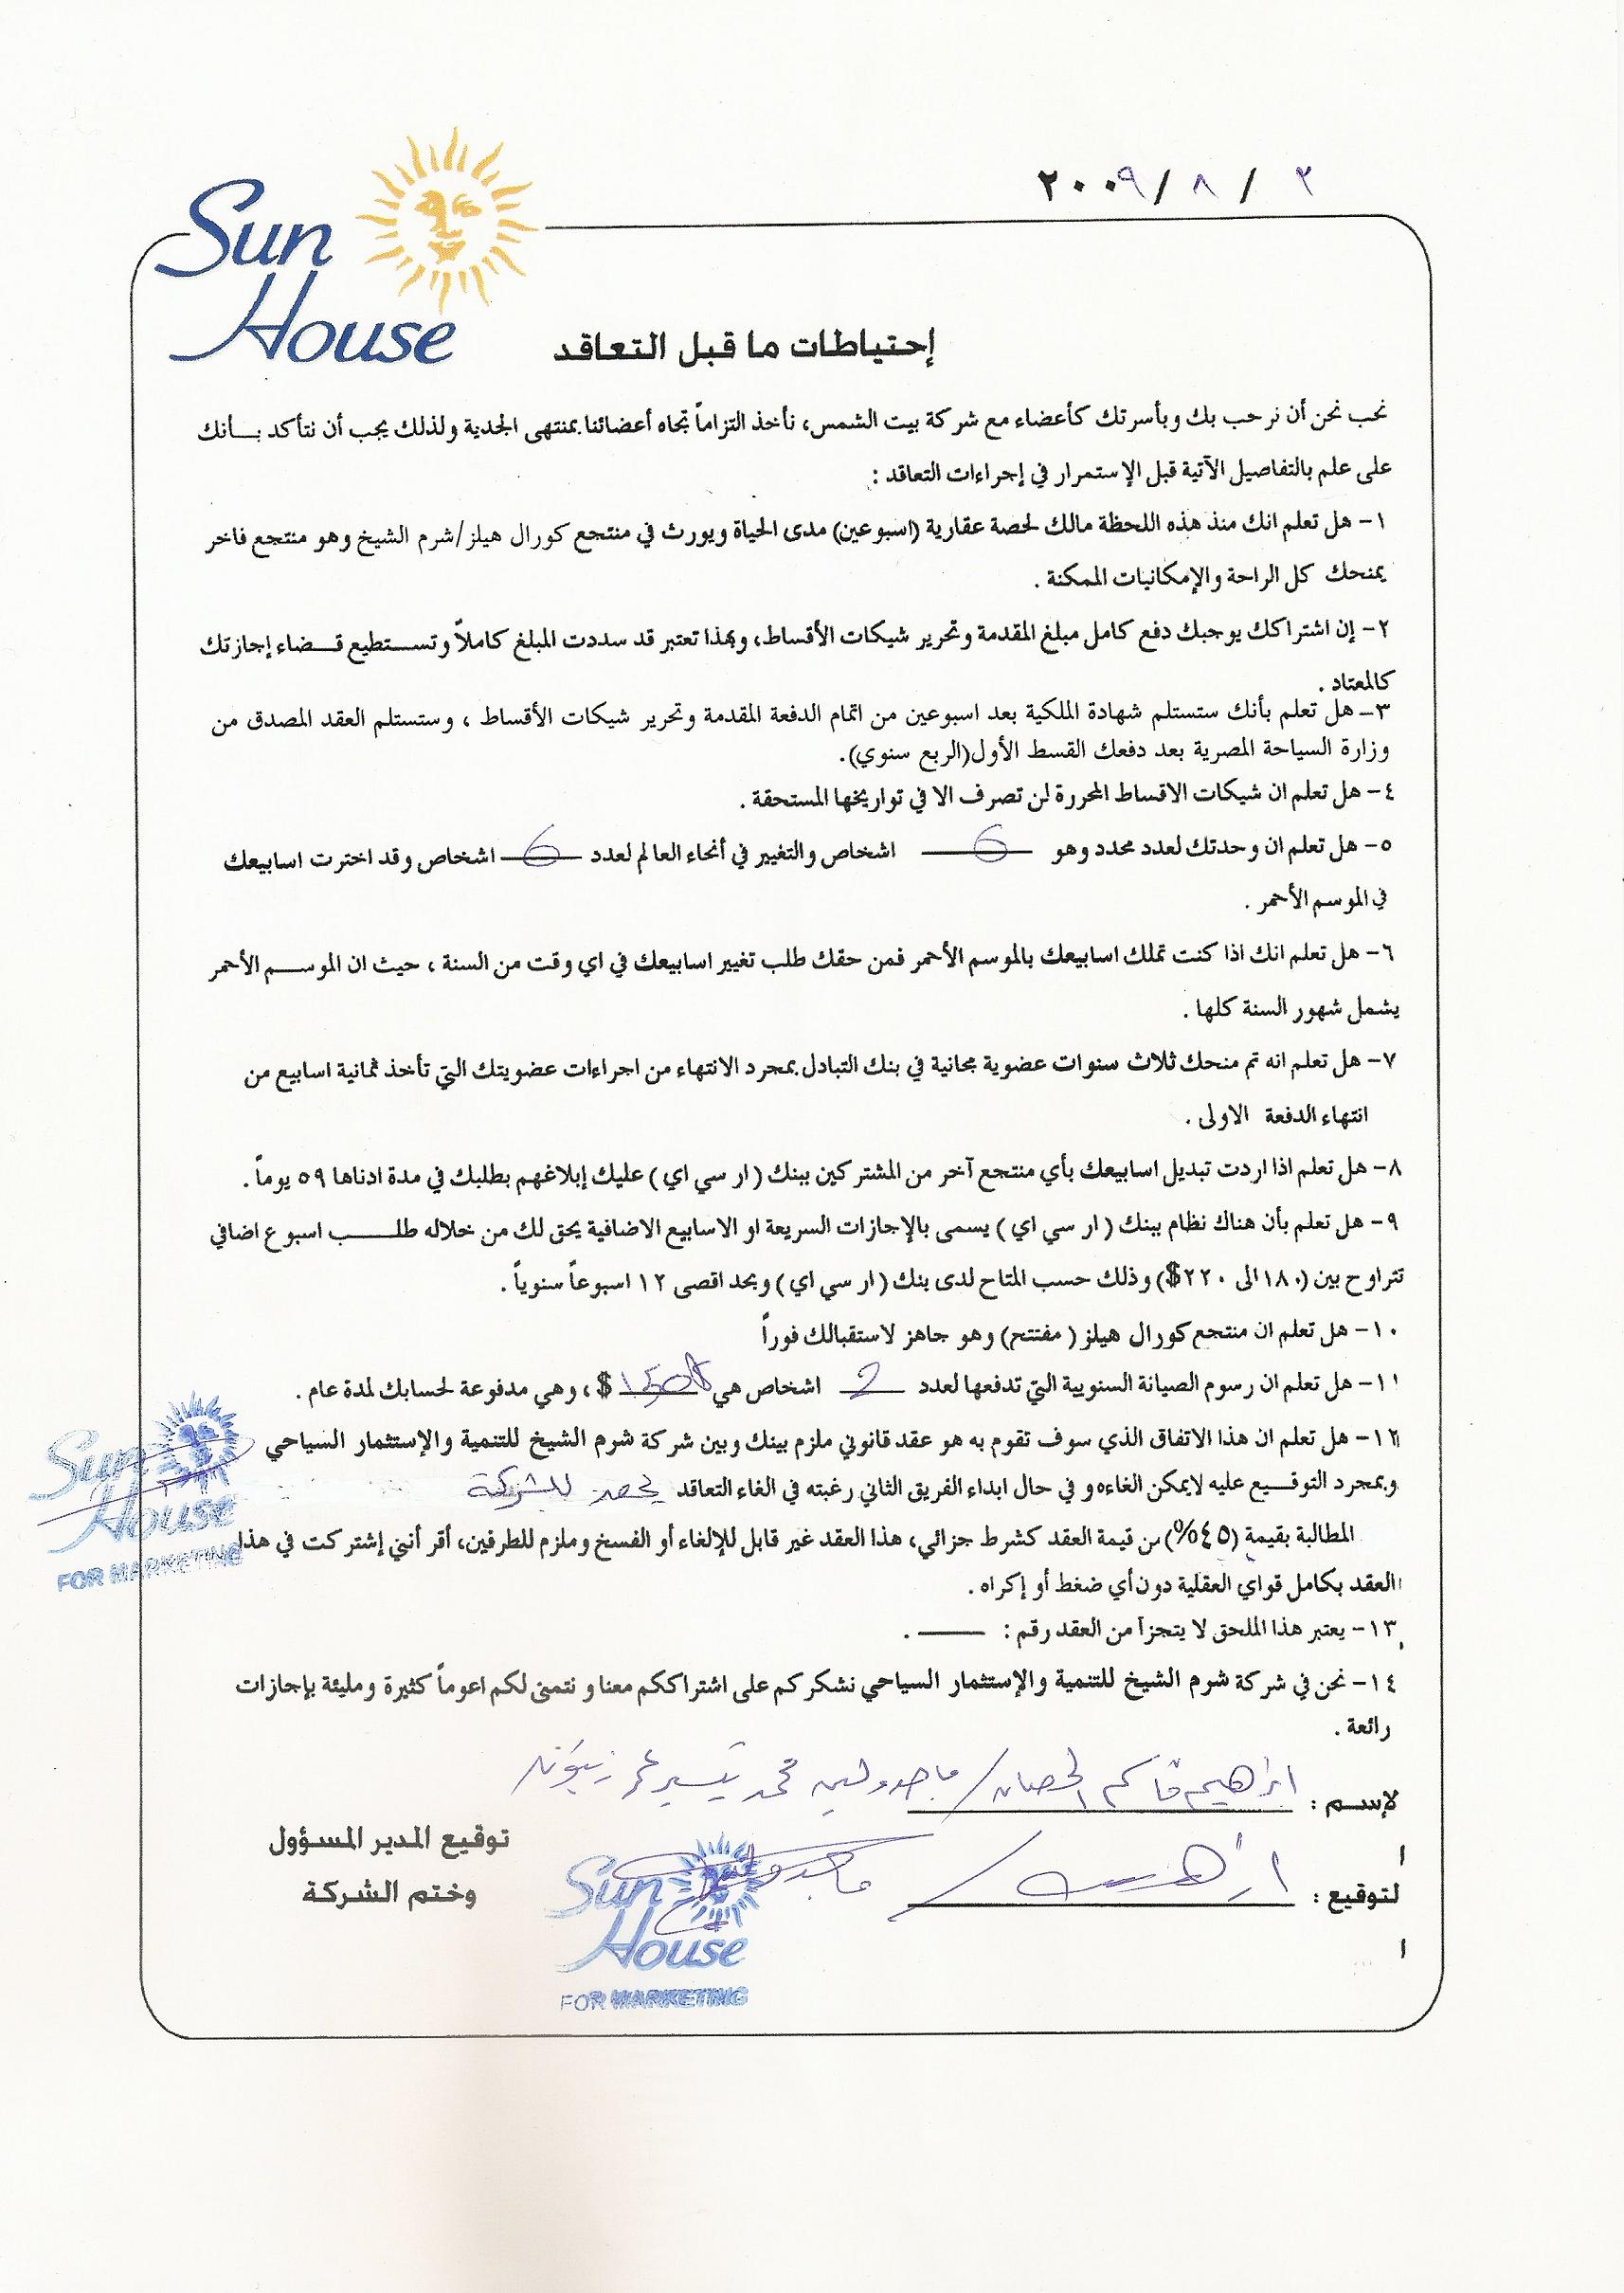 ٢ / ٨ / ٢٠٠٩
Sun
House
إحتياطات ما قبل التعاقد
نحب نحن أن نرحب بك وبأسرتك كأعضاء مع شركة بيت الشمس، نأخذ التزاماً تجاه أعضائنا بمنتهى الجدية ولذلك يجب أن نتأكد بـأنك
على علم بالتفاصيل الآتية قبل الإستمرار في إجراءات التعاقد :
١- هل تعلم انك منذ هذه اللحظة مالك لحصة عقارية (اسبوعين) مدى الحياة ويورث في منتجع كورال هيلز/شرم الشيخ وهو منتجع فاخر
يمنحك كل الراحة والإمكانيات الممكنة .
٢- إن اشتراكك يوجبك دفع كامل مبلغ المقدمة وتحرير شيكات الأقساط، وبهذا تعتبر قد سددت المبلغ كاملاً وتستطيع قضاء إجازتك
كالمعتاد .
٣- هل تعلم بأنك ستستلم شهادة الملكية بعد اسبوعين من اتمام الدفعة المقدمة وتحرير شيكات الأقساط ، وستستلم العقد المصدق من
وزارة السياحة المصرية بعد دفعك القسط الأول(الربع سنوي).
٤- هل تعلم ان شيكات الاقساط المحررة لن تصرف الا في تواريخها المستحقة .
٥- هل تعلم ان وحدتك لعدد محدد وهو 6 اشخاص والتغيير في أنحاء العالم لعدد 6 اشخاص وقد اخترت اسابيعك
في الموسم الأحمر .
٦- هل تعلم انك اذا كنت تملك اسابيعك بالموسم الأحمر فمن حقك طلب تغيير اسابيعك في اي وقت من السنة ، حيث ان الموسم الأحمر
يشمل شهور السنة كلها .
٧- هل تعلم انه تم منحك ثلاث سنوات عضوية مجانية في بنك التبادل بمجرد الانتهاء من اجراءات عضويتك التي تأخذ ثمانية اسابيع من
انتهاء الدفعة الاولى .
٨- هل تعلم اذا اردت تبديل اسابيعك بأي منتجع آخر من المشتركين ببنك ( ار سي اي ) عليك إبلاغهم بطلبك في مدة ادناها ٥٩ يوماً .
٩- هل تعلم بأن هناك نظام ببنك ( ار سي اي ) يسمى بالإجازات السريعة او الاسابيع الاضافية يحق لك من خلاله طلب اسبوع اضافي
تتراوح بين (١٨٠ الى ٢٢٠$) وذلك حسب المتاح لدى بنك ( ار سي اي ) وبحد اقصى ١٢ اسبوعاً سنوياً .
١٠- هل تعلم ان منتجع كورال هيلز ( مفتتح) وهو جاهز لاستقبالك فوراً
١١- هل تعلم ان رسوم الصيانة السنويية التي تدفعها لعدد 2 اشخاص هي $ ، وهي مدفوعة لحسابك لمدة عام .
١٢- هل تعلم ان هذا الاتفاق الذي سوف تقوم به هو عقد قانوني ملزم بينك وبين شركة شرم الشيخ للتنمية والإستثمار السياحي
وبمجرد التوقيع عليه لايمكن الغاءه و في حال ابداء الفريق الثاني رغبته في الغاء التعاقد يحق للشركة
المطالبة بقيمة (٤٥%) من قيمة العقد كشرط جزائي، هذا العقد غير قابل للإلغاء أو الفسخ وملزم للطرفين، أقر أنني إشتركت في هذا
العقد بكامل قواي العقلية دون أي ضغط أو إكراه .
١٣- يعتبر هذا الملحق لا يتجزأ من العقد رقم : .
١٤- نحن في شركة شرم الشيخ للتنمية والإستثمار السياحي نشكركم على اشتراككم معنا و نتمنى لكم اعوماً كثيرة ومليئة بإجازات
رائعة .
Sun
House
FOR MARKETING
لإسم : ابراهيم قاسم الحصان / ماجدولين محمد تيسير
لتوقيع : ابراهيم / ماجدولين
توقيع المدير المسؤول
وختم الشركة
Sun
House
FOR MARKETING